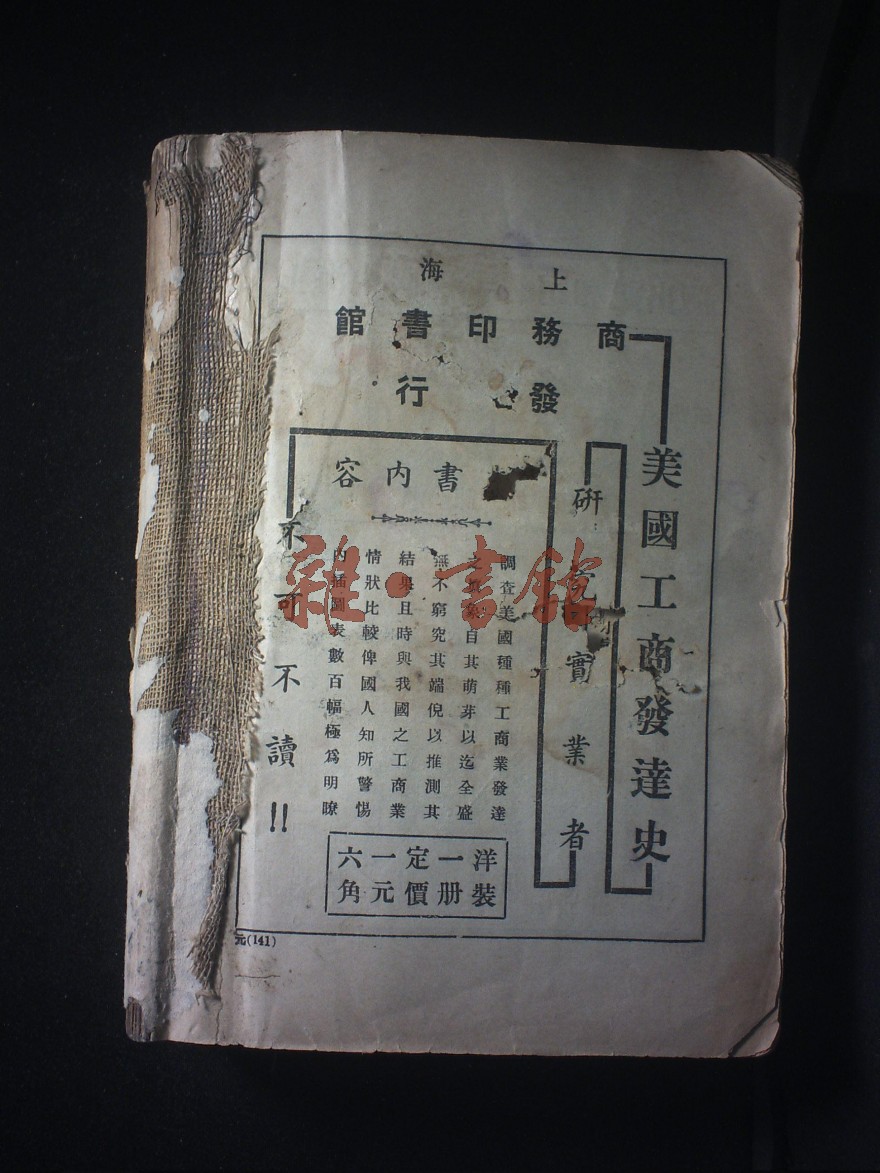 上海
商務印書館
發行
美國工商發達史
研究實業者
不可不讀!!
書內容
調查美國種種工商業發達
之真象自其萌芽以迄全盛
無不窮究其端倪以推測其
結果且時與我國之工商業
情狀比較俾國人知所警惕
內插圖表數百幅極爲明瞭
洋裝一册
定價一元六角
元(141)
雜·書館